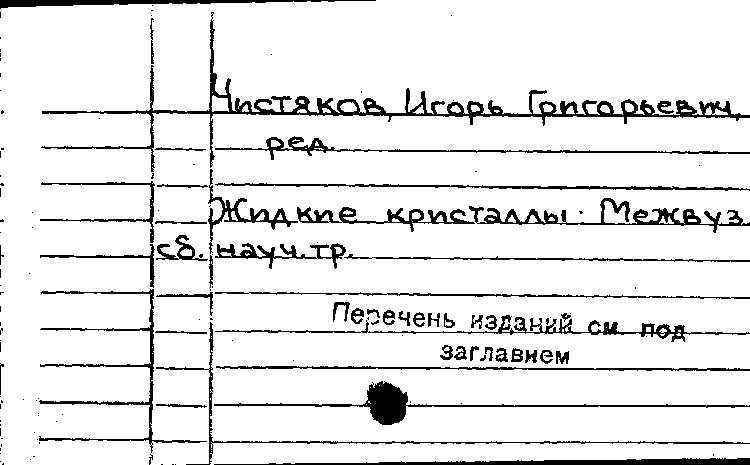 Чистяков, Игорь Григорьевич,
ред.
Жидкие кристаллы: Межвуз.
сб. науч. тр.
Перечень изданий см. под
заглавием